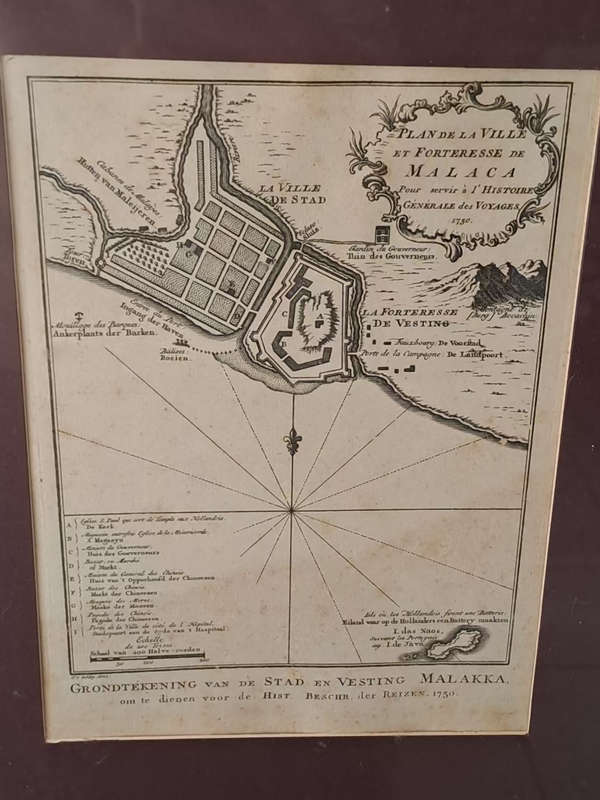 PLAN DE LA VILLE
ET FORTERESSE DE
MALACA
Pour servir à l'HISTOIRE
GENERALE des VOYAGES,
1750.
Cabanes de Malayes
Hutten van Maleijeren
LA VILLE
DE STAD
Ecluse
Sluis
Jardin du Gouverneur:
Tuin des Gouverneurs.
Toren
Entrée du Port
Ingang der Haven
Mouillage des Barques:
Ankerplaats der Barken.
Balises:
Boeien.
LA FORTERESSE
DE VESTING
Fauxbourg: De Voorstad
Porte de la Campagne: De Landpoort.
A Eglise S. Paul qui sert de Temple aux Hollandois
De Kerk
B Magasin autrefois Eglise de la Misericorde
't Magazyn
C Maison du Gouverneur.
Huis des Gouverneurs
D Bazar ou Marché
of Markt
E Maison du General des Chinois
Huis van 't Opperhoofd der Chineezen
F Bazar des Chinois
Markt der Chineezen
G Mosquée des Mores
Moskee der Mooren
H Pagode des Chinois
Pagode der Chineezen
I Porte de la Ville du côté de l'Hôpital
Stadspoort aan de zyde van 't Hospitaal
Echelle
Schaal van 400 Halve-roeden
Isle où les Hollandois firent une Batterie:
Eiland waar op de Hollanders een Battery maakten
I. das Naos,
Suivant les Portugais
I. de Java
GRONDTEKENING VAN DE STAD EN VESTING MALAKKA,
om te dienen voor de HIST. BESCHR. der REIZEN. 1750.